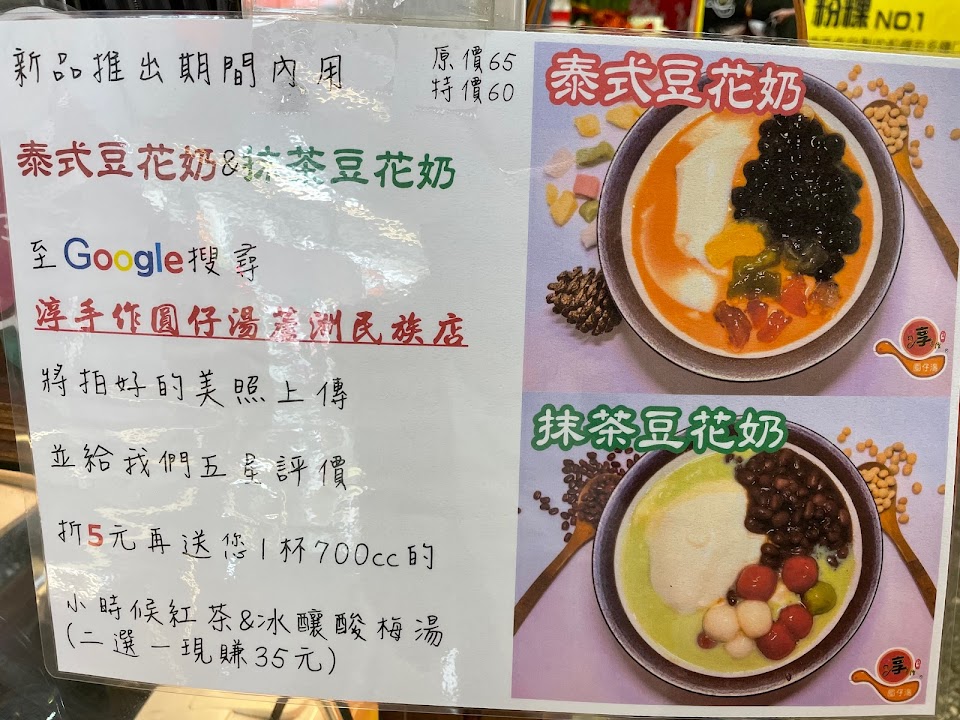 粉粿NO.1
新品推出期間內用
原價65
特價60
泰式豆花奶&抹茶豆花奶
至Google搜尋
淳手作圓仔湯蘆洲民族店
將拍好的美照上傳
並給我們五星評價
折5元再送您1杯700cc的
小時候紅茶&冰釀酸梅湯
(二選一現賺35元)
泰式豆花奶
淳
圓仔湯
抹茶豆花奶
淳
圓仔湯